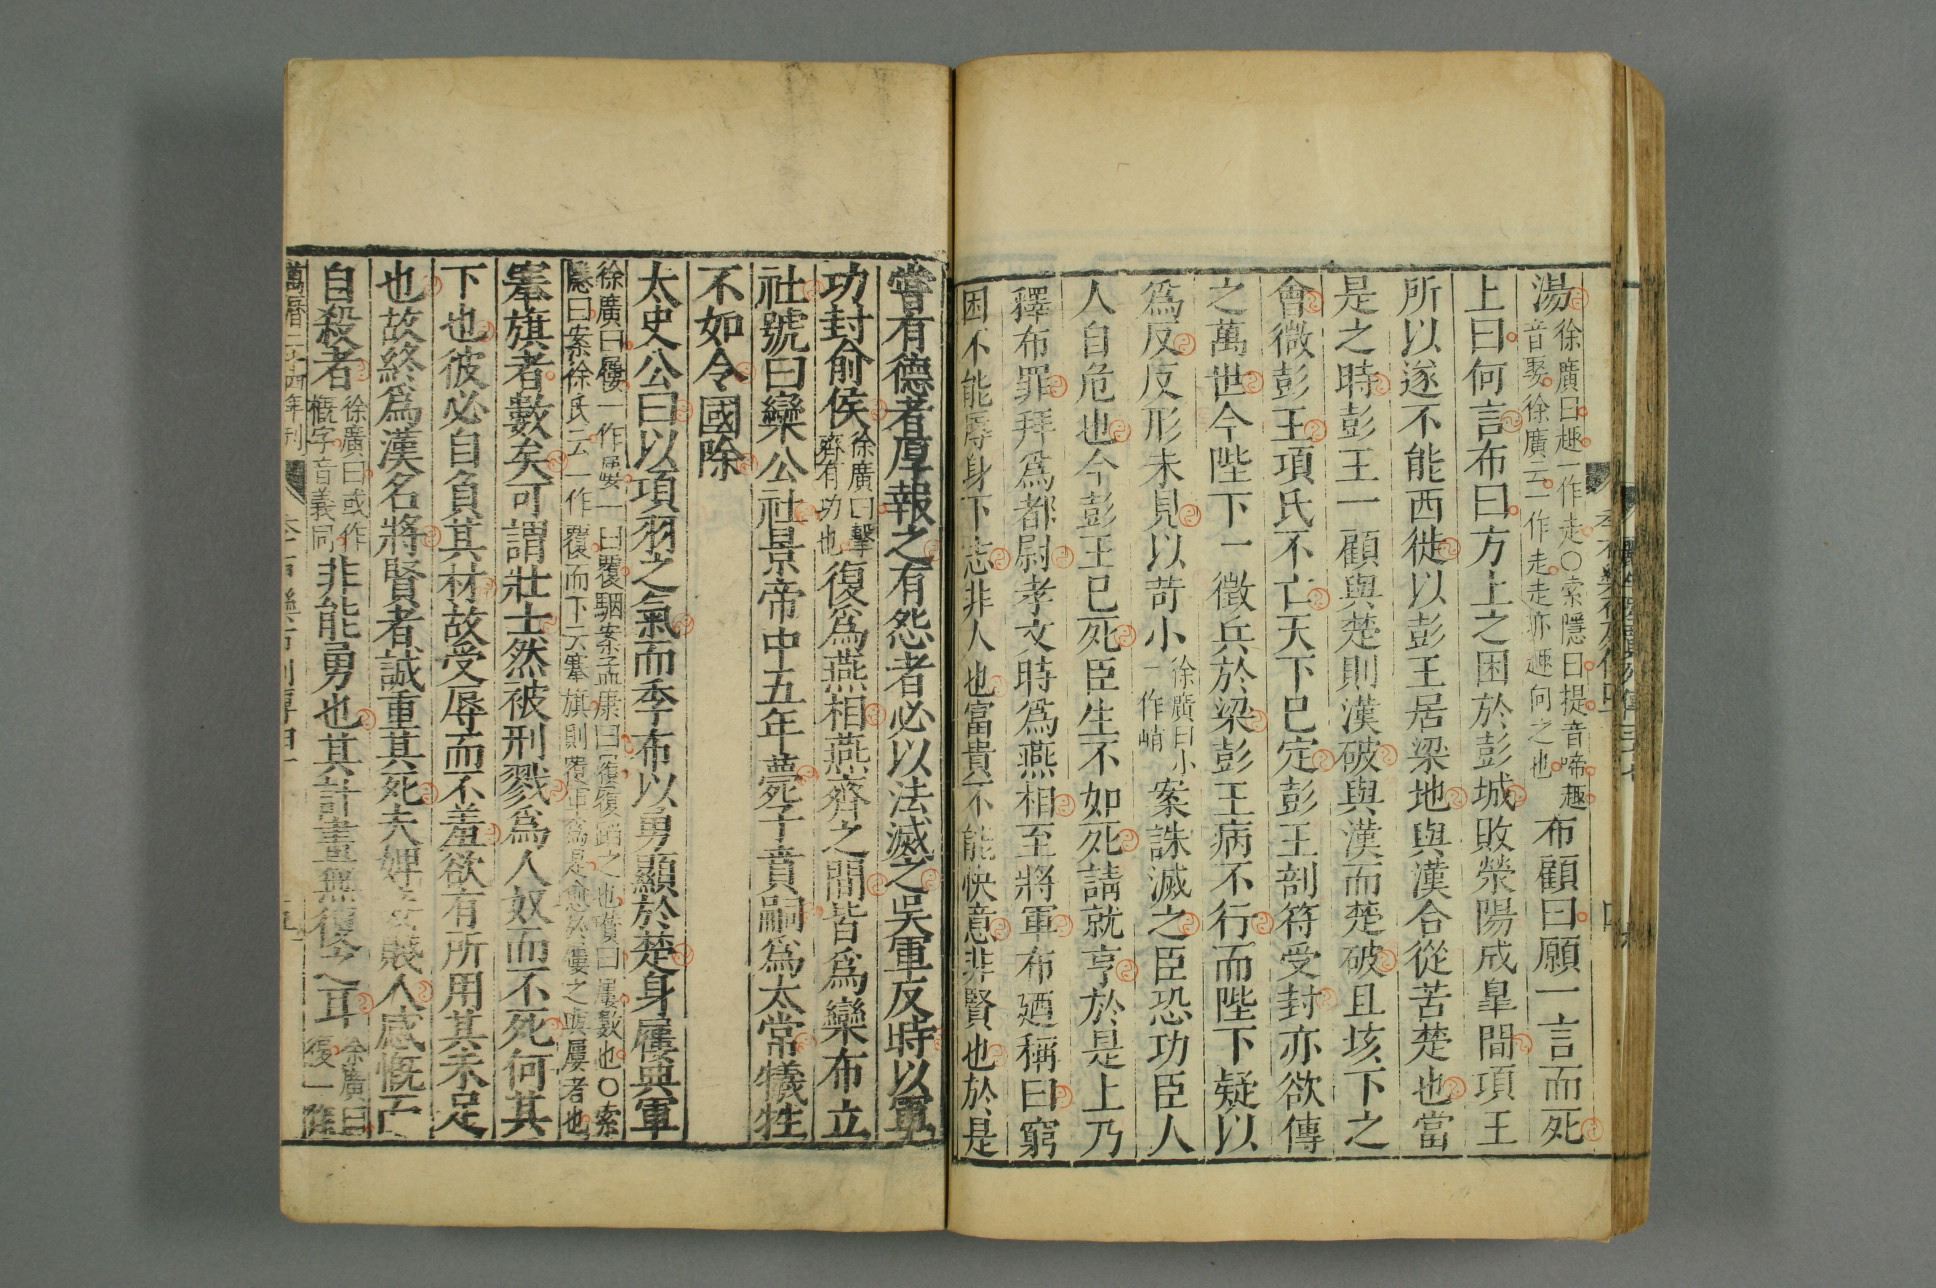 湯徐廣曰趣一作走○索隱曰提音啼趣
音娶徐廣云一作走走亦趣向之也布顧曰願一言而死
上曰何言布曰方上之困於彭城敗滎陽成皐間項王
所以遂不能西徙以彭王居梁地與漢合從苦楚也當
是之時彭王一顧與楚則漢破與漢而楚破且垓下之
會微彭王項氏不亡天下已定彭王剖符受封亦欲傳
之萬世今陛下一徵兵於梁彭王病不行而陛下疑以
爲反反形未見以苛小徐廣曰小
一作峭案誅滅之臣恐功臣人
人自危也今彭王已死臣生不如死請就亨於是上乃
釋布罪拜爲都尉孝文時爲燕相至將軍布廼稱曰窮
困不能辱身下志非人也富貴不能快意非賢也於是
嘗有德者厚報之有怨者必以法滅之吳軍反時以軍
功封俞侯徐廣曰擊
齊有功也復爲燕相燕齊之間皆爲欒布立
社號曰欒公社景帝中五年薨子賁嗣爲太常犧牲
不如令國除
太史公曰以項羽之氣而季布以勇顯於楚身屨典軍
徐廣曰屨一作屢一曰覆駰案孟康曰履履蹈之也瓚曰屨數也○索
隱曰案徐氏云一作覆而下云搴旗則覆軍爲是
搴旗者數矣可謂壯士然被刑戮爲人奴而不死何其
下也彼必自負其材故受辱而不羞欲有所用其未足
也故終爲漢名將賢者誠重其死夫婢妾賤人感慨而
自殺者徐廣曰或作
概字音義同非能勇也其計畫無復之耳徐廣曰
復一作
萬曆二十四年刊